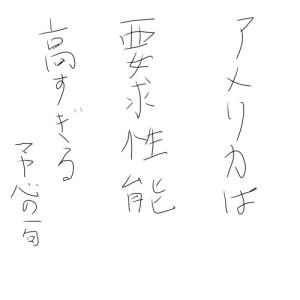 アメリカは
要求性能
高すぎる
マヤ心の一句